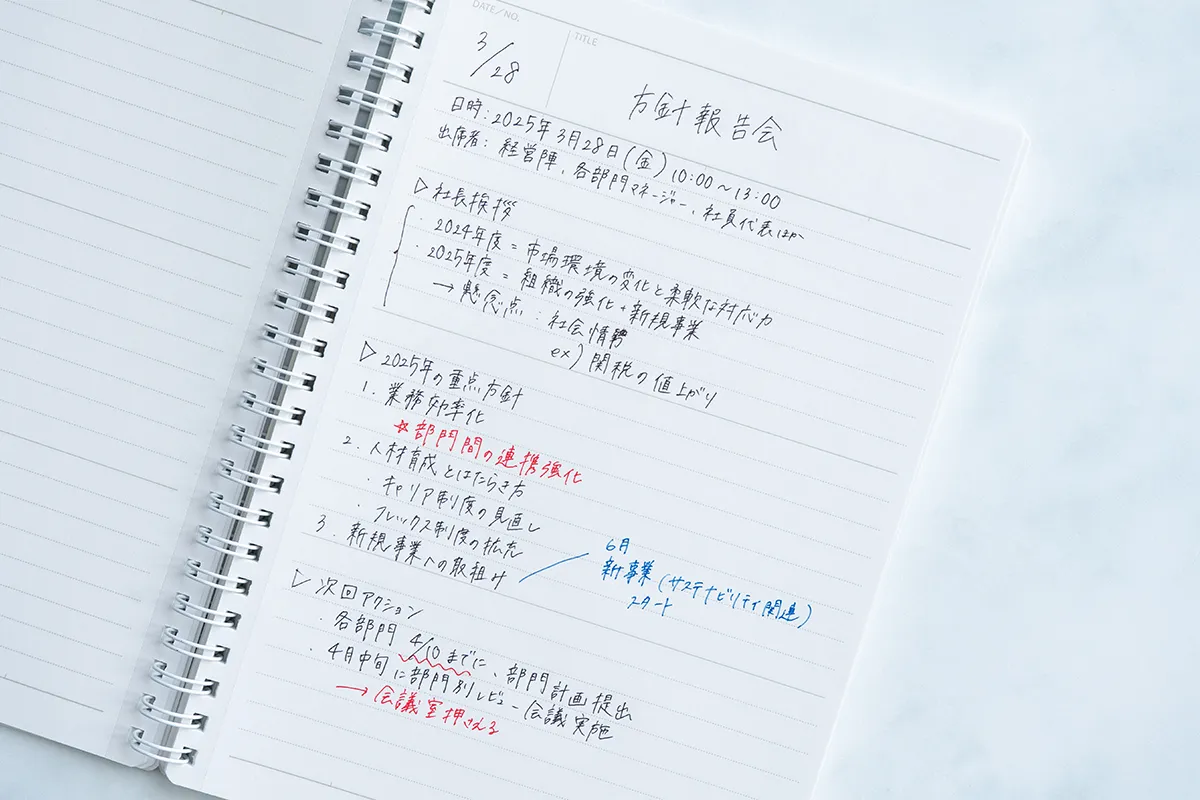 DATE/NO.
TITLE
3/28
方針報告会
日時:2025年3月28日(金)10:00〜13:00
出席者:経営陣、各部門マネージャー、社員代表ほか
▷社長挨拶
・2024年度=市場環境の変化と柔軟な対応力
・2025年度=組織の強化+新規事業
→懸念点:社会情勢
ex)関税の値上がり
▷2025年の重点方針
1.業務効率化
☆部門間の連携強化
2.人材育成とはたらき方
・キャリア制度の見直し
・フレックス制度の拡充
3.新規事業への取組み
6月
新事業(サステナビリティ関連)
スタート
▷次回アクション
・各部門4/10までに、部門計画提出
・4月中旬に部門別レビュー会議実施
→会議室押さえる